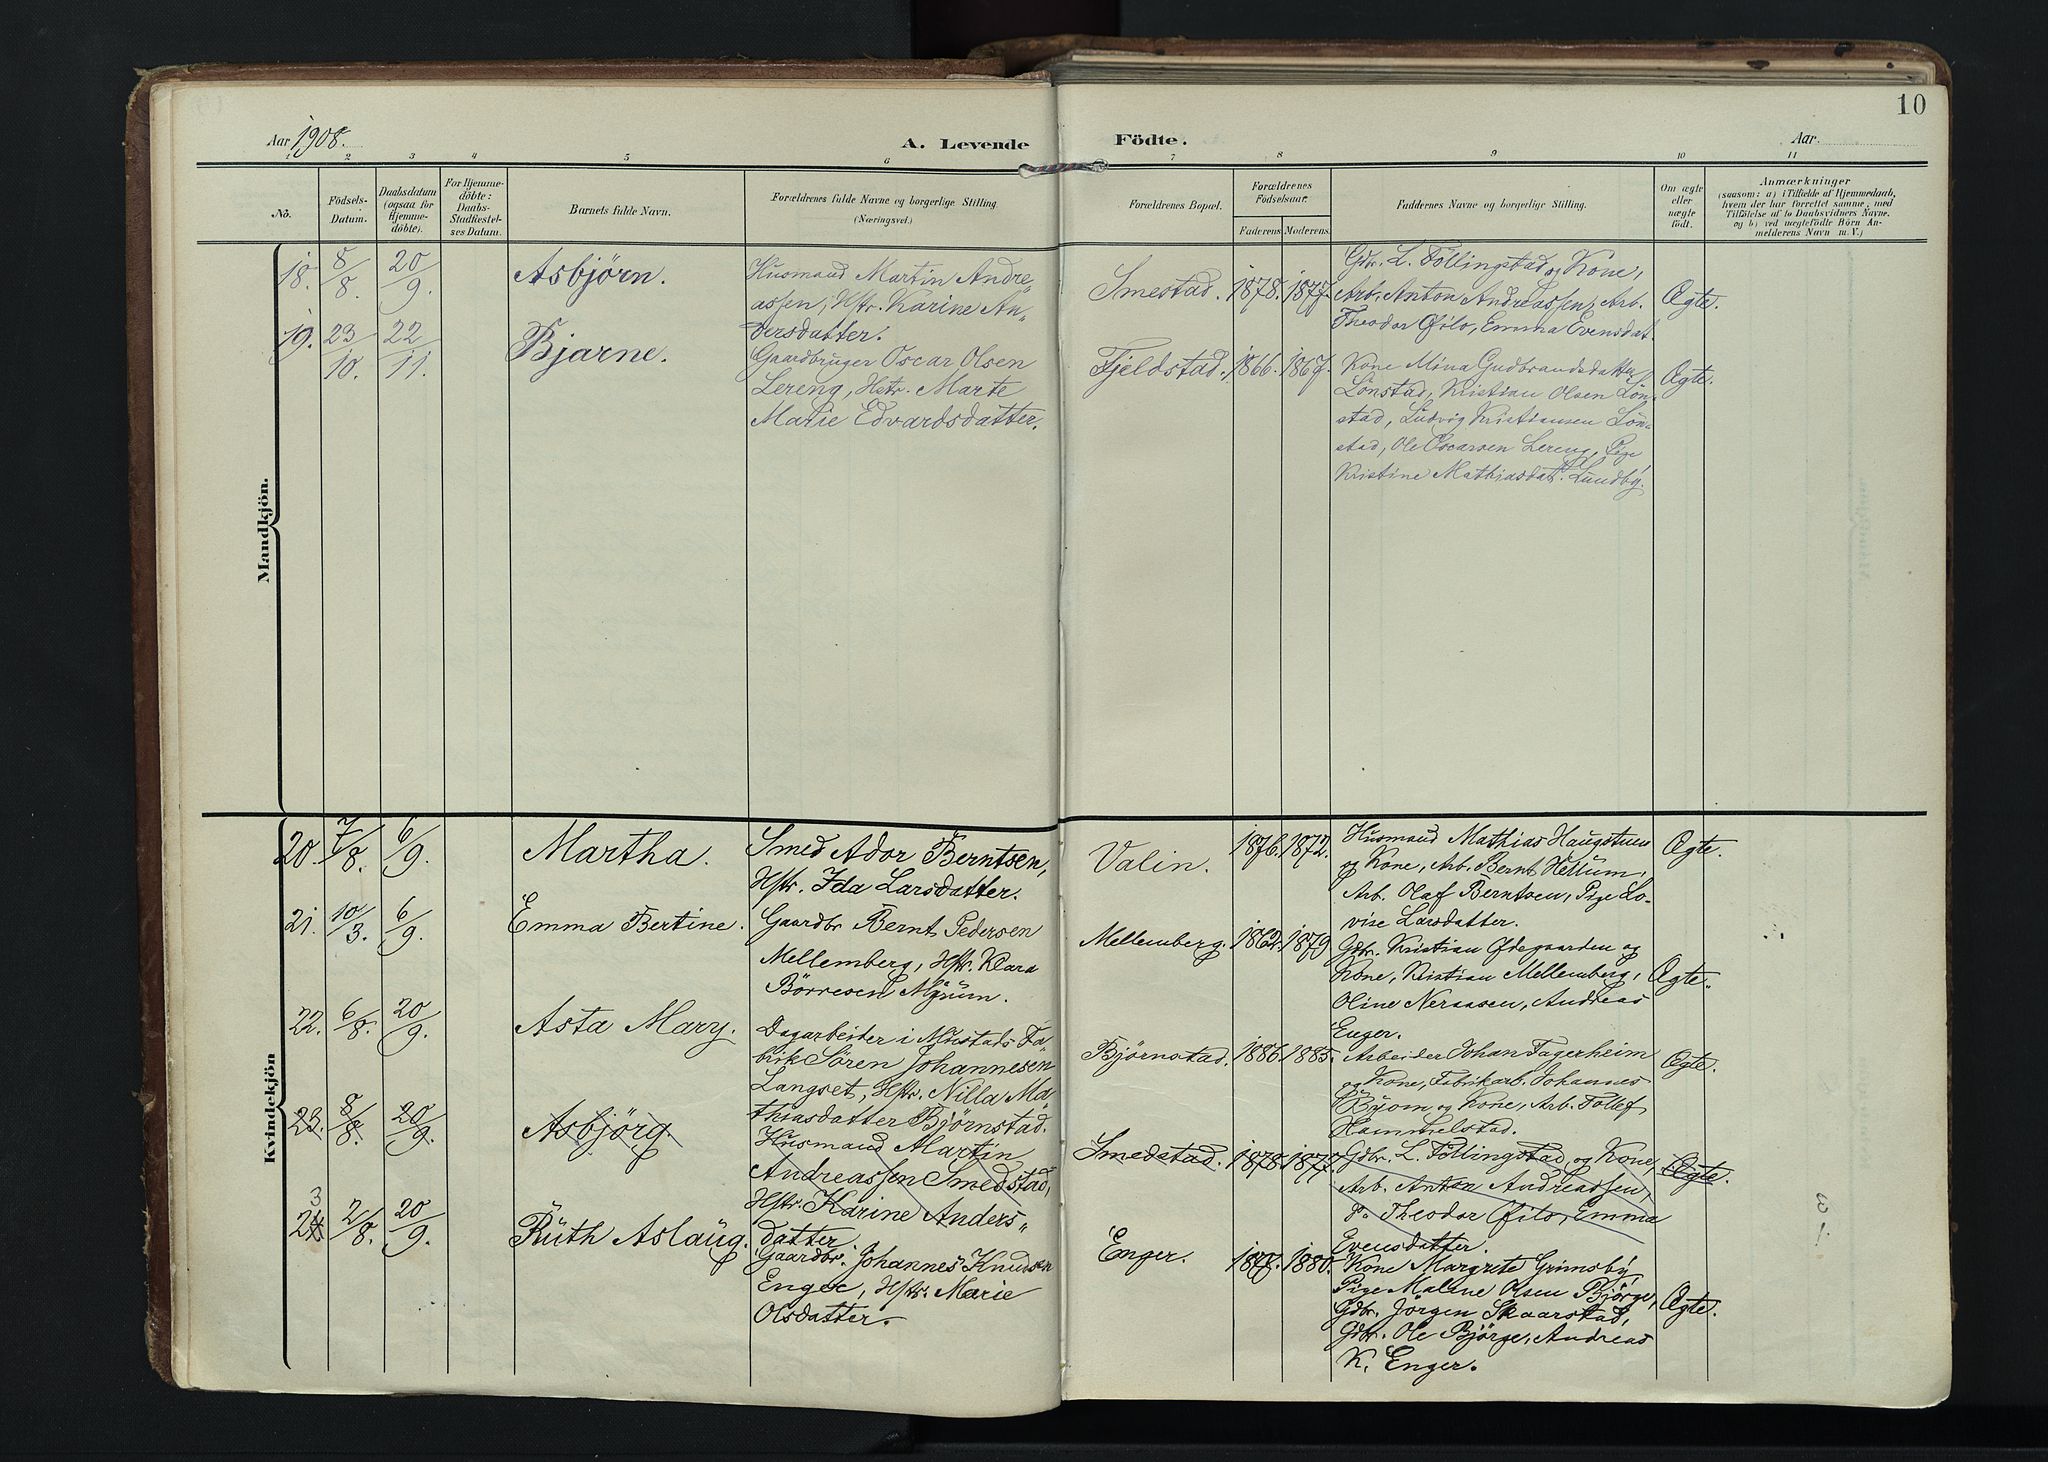 Aar 1908.
A. Levende
Födte.
Aar.
10
1 2 3 4 5 6 7 8 9 10 11
No.
Födsels-
Datum.
Daabsdatum
(ogsaa for
Hjemme-
döbte).
For Hjemme-
döbte:
Daabs-
Stadfæstel-
ses Datum.
Barnets fulde Navn.
Forældrenes fulde Navne og borgerlige Stilling.
(Næringsvei.)
Forældrenes Bopæl.
Forældrenes
Födselsaar.
Faderens. Moderens.
Faddernes Navne og borgerlige Stilling.
Om ægte
eller
uægte
födt.
Anmærkninger
(saasom: a) i Tilfælde af Hjemmedaab,
hvem der har forrettet samme, med
Tilföielse af to Daabsvidners Navne,
og b) ved uægtefödte Börn An-
melderens Navn m. V.)
Mandkjön.
18. 8/8. 20/9. Asbjørn.
Husmand Martin Andre-
assen, Hstr. Karine An-
dersdatter.
Smestad. 1878. 1877.
Gdbr. L. Föllingstad og Kone,
Arb. Anton Andreassen, Arb.
Theodor Øfilo, Emma Evensdat.
Ægte.
19. 23/10. 22/11. Bjarne.
Gaardbruger Oscar Olsen
Lereng, Hstr. Marte
Marie Edvardsdatter.
Fjeldstad. 1866. 1867.
Kone Mina Gudbrandsdatter
Lönstad, Kristian Olsen Lön-
stad, Ludvig Kristiansen Lön-
stad, Ole Oscarsen Lereng, Pige
Kristine Mathiasdat. Lundby.
Ægte.
Kvindekjön
20. 7/8. 6/9. Martha.
Smed Ador Berntsen,
Hstr. Ida Larsdatter.
Valin. 1876. 1872.
Husmand Mathias Haugstuen
og Kone, Arb. Bernt Hellum,
Arb. Olaf Berntsen, Pige Lo-
vise Larsdatter.
Ægte.
21. 10/3. 6/9. Emma Bertine.
Gaardbr Bernt Pedersen
Mellemberg, Hstr. Klara
Börresen
Mellemberg. 1862. 1879
Gdbr. Kristian Ødegaarden og
Kone, Kristian Mellemberg,
Oline Neraasen, Andreas
Enger.
Ægte.
22. 6/8. 20/9. Asta Mary.
Dagarbeider i Mustads Fa-
brik Sören Johannesen
Langset, Hstr. Nilla Ma-
thiasdatter Bjørnstad.
Bjørnstad. 1886. 1885.
Arbeider Johan Fagerheim
og Kone, Fabrikarb. Johannes
Byom og Kone, Arb. Tollef
Hammelstad.
Ægte.
23. 8/8. 20/9. Asbjörg.
Husmand Martin
Andreassen Smedstad,
Hstr. Karine Anders-
datter
Smedstad. 1878. 1877.
Gdbr. L. Föllingstad og Kone,
Arb. Anton Andreassen,
Do Theodor Øfilo, Emma
Evensdatter.
Ægte.
3
24 2/8. 20/9. Ruth Aslaug.
Gaardbr. Johannes Knudsen
Enger, Hstr. Marie
Olsdatter.
Enger. 1877. 1880.
Kone Margrete Grimsby,
Pige Malene Olsen Björge,
Gdbr. Jörgen Skaarstad,
Gdbr. Ole Björge, Andreas
K. Enger.
Ægte.